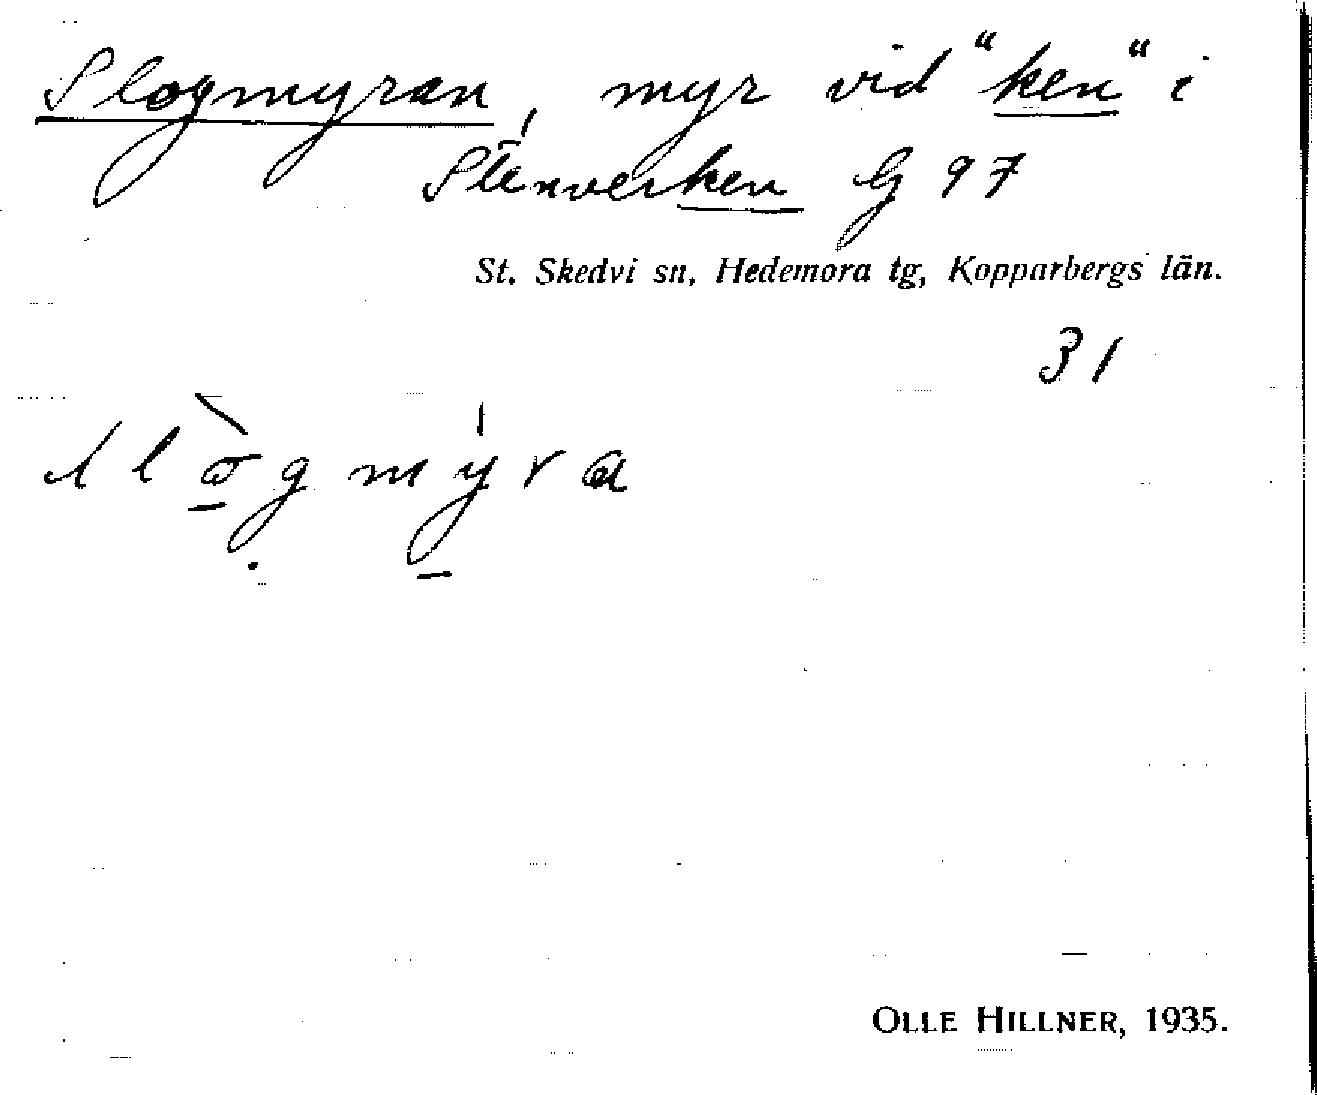 Slogmyran, myr vid "ken" i
Stenverken G 97
St. Skedvi sn, Hedemora tg, Kopparbergs län.
31
OLLE HILLNER, 1935.